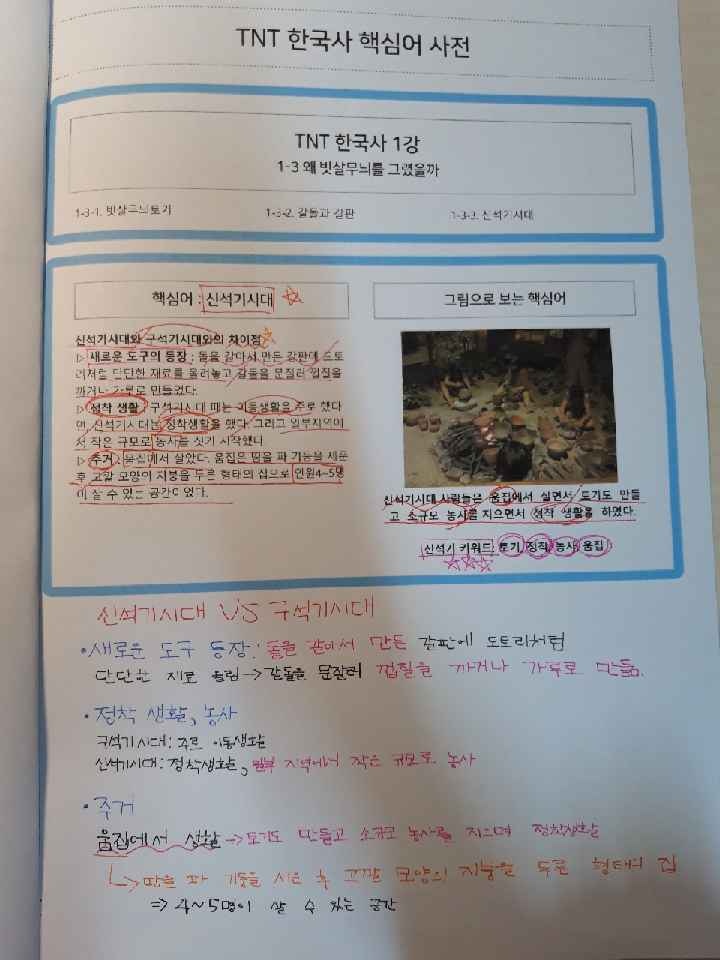 TNT 한국사 핵심어 사전
TNT 한국사 1강
1-3 왜 빗살무늬를 그렸을까
1-3-1. 빗살무늬토기
1-3-2. 갈돌과 갈판
1-3-3. 신석기시대
핵심어 : 신석기시대
신석기시대와 구석기시대와의 차이점
▷ 새로운 도구의 등장 : 돌을 갈아서 만든 갈판에 도토
리처럼 단단한 재료를 올려놓고 갈돌을 문질러 껍질을
까거나 가루로 만들었다.
▷ 정착 생활 : 구석기시대 때는 이동생활을 주로 했다
면, 신석기시대는 정착생활을 했다. 그리고 일부지역에
서 작은 규모로 농사를 짓기 시작했다.
▷ 주거 : 움집에서 살았다. 움집은 땅을 파 기둥을 세운
후 고깔 모양의 지붕을 두른 형태의 집으로 인원4~5명
이 살 수 있는 공간이었다.
그림으로 보는 핵심어
신석기시대 사람들은 움집에서 살면서 토기도 만들
고 소규모 농사를 지으면서 정착 생활을 하였다.
신석기 키워드: 토기, 정착, 농사, 움집
신석기시대 VS 구석기시대
•새로운 도구 등장: 돌을 갈아서 만든 갈판에 도토리처럼
단단한 재료 올림→갈돌을 문질러 껍질을 까거나 가루로 만듦.
•정착 생활, 농사
구석기시대: 주로 이동생활
신석기시대: 정착생활, 일부 지역에서 작은 규모로 농사
•주거
움집에서 생활→토기도 만들고 소규모 농사를 지으며 정착생활
↳땅을 파 기둥을 세운 후 고깔 모양의 지붕을 두른 형태의 집
⇒4~5명이 살 수 있는 공간